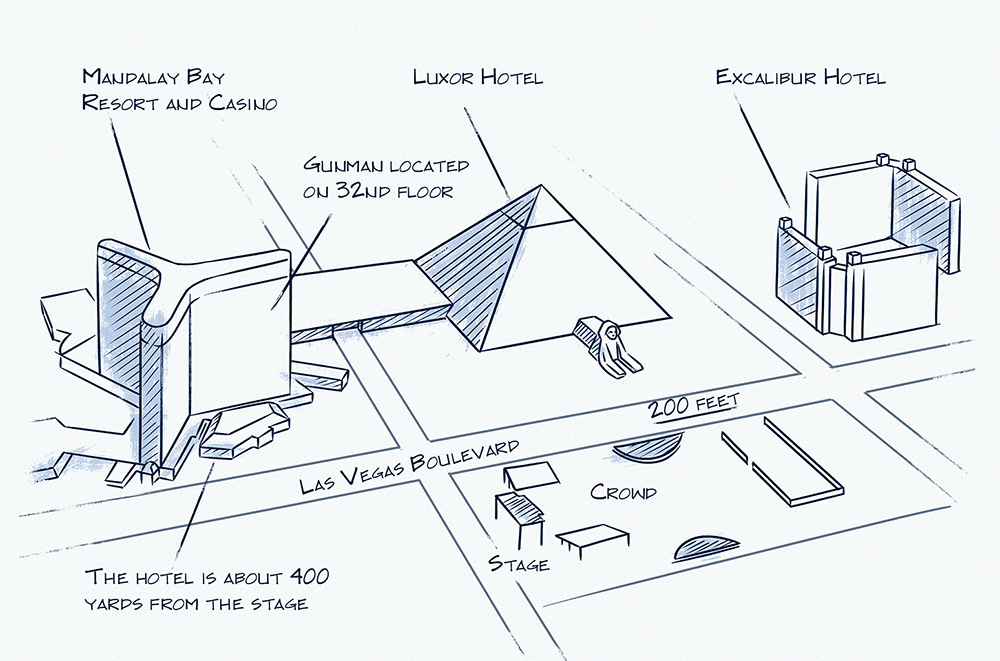 Mandalay Bay
Resort and Casino
Luxor Hotel
Excalibur Hotel
Gunman located
on 32nd floor
200 feet
Las Vegas Boulevard
Crowd
Stage
The hotel is about 400
yards from the stage